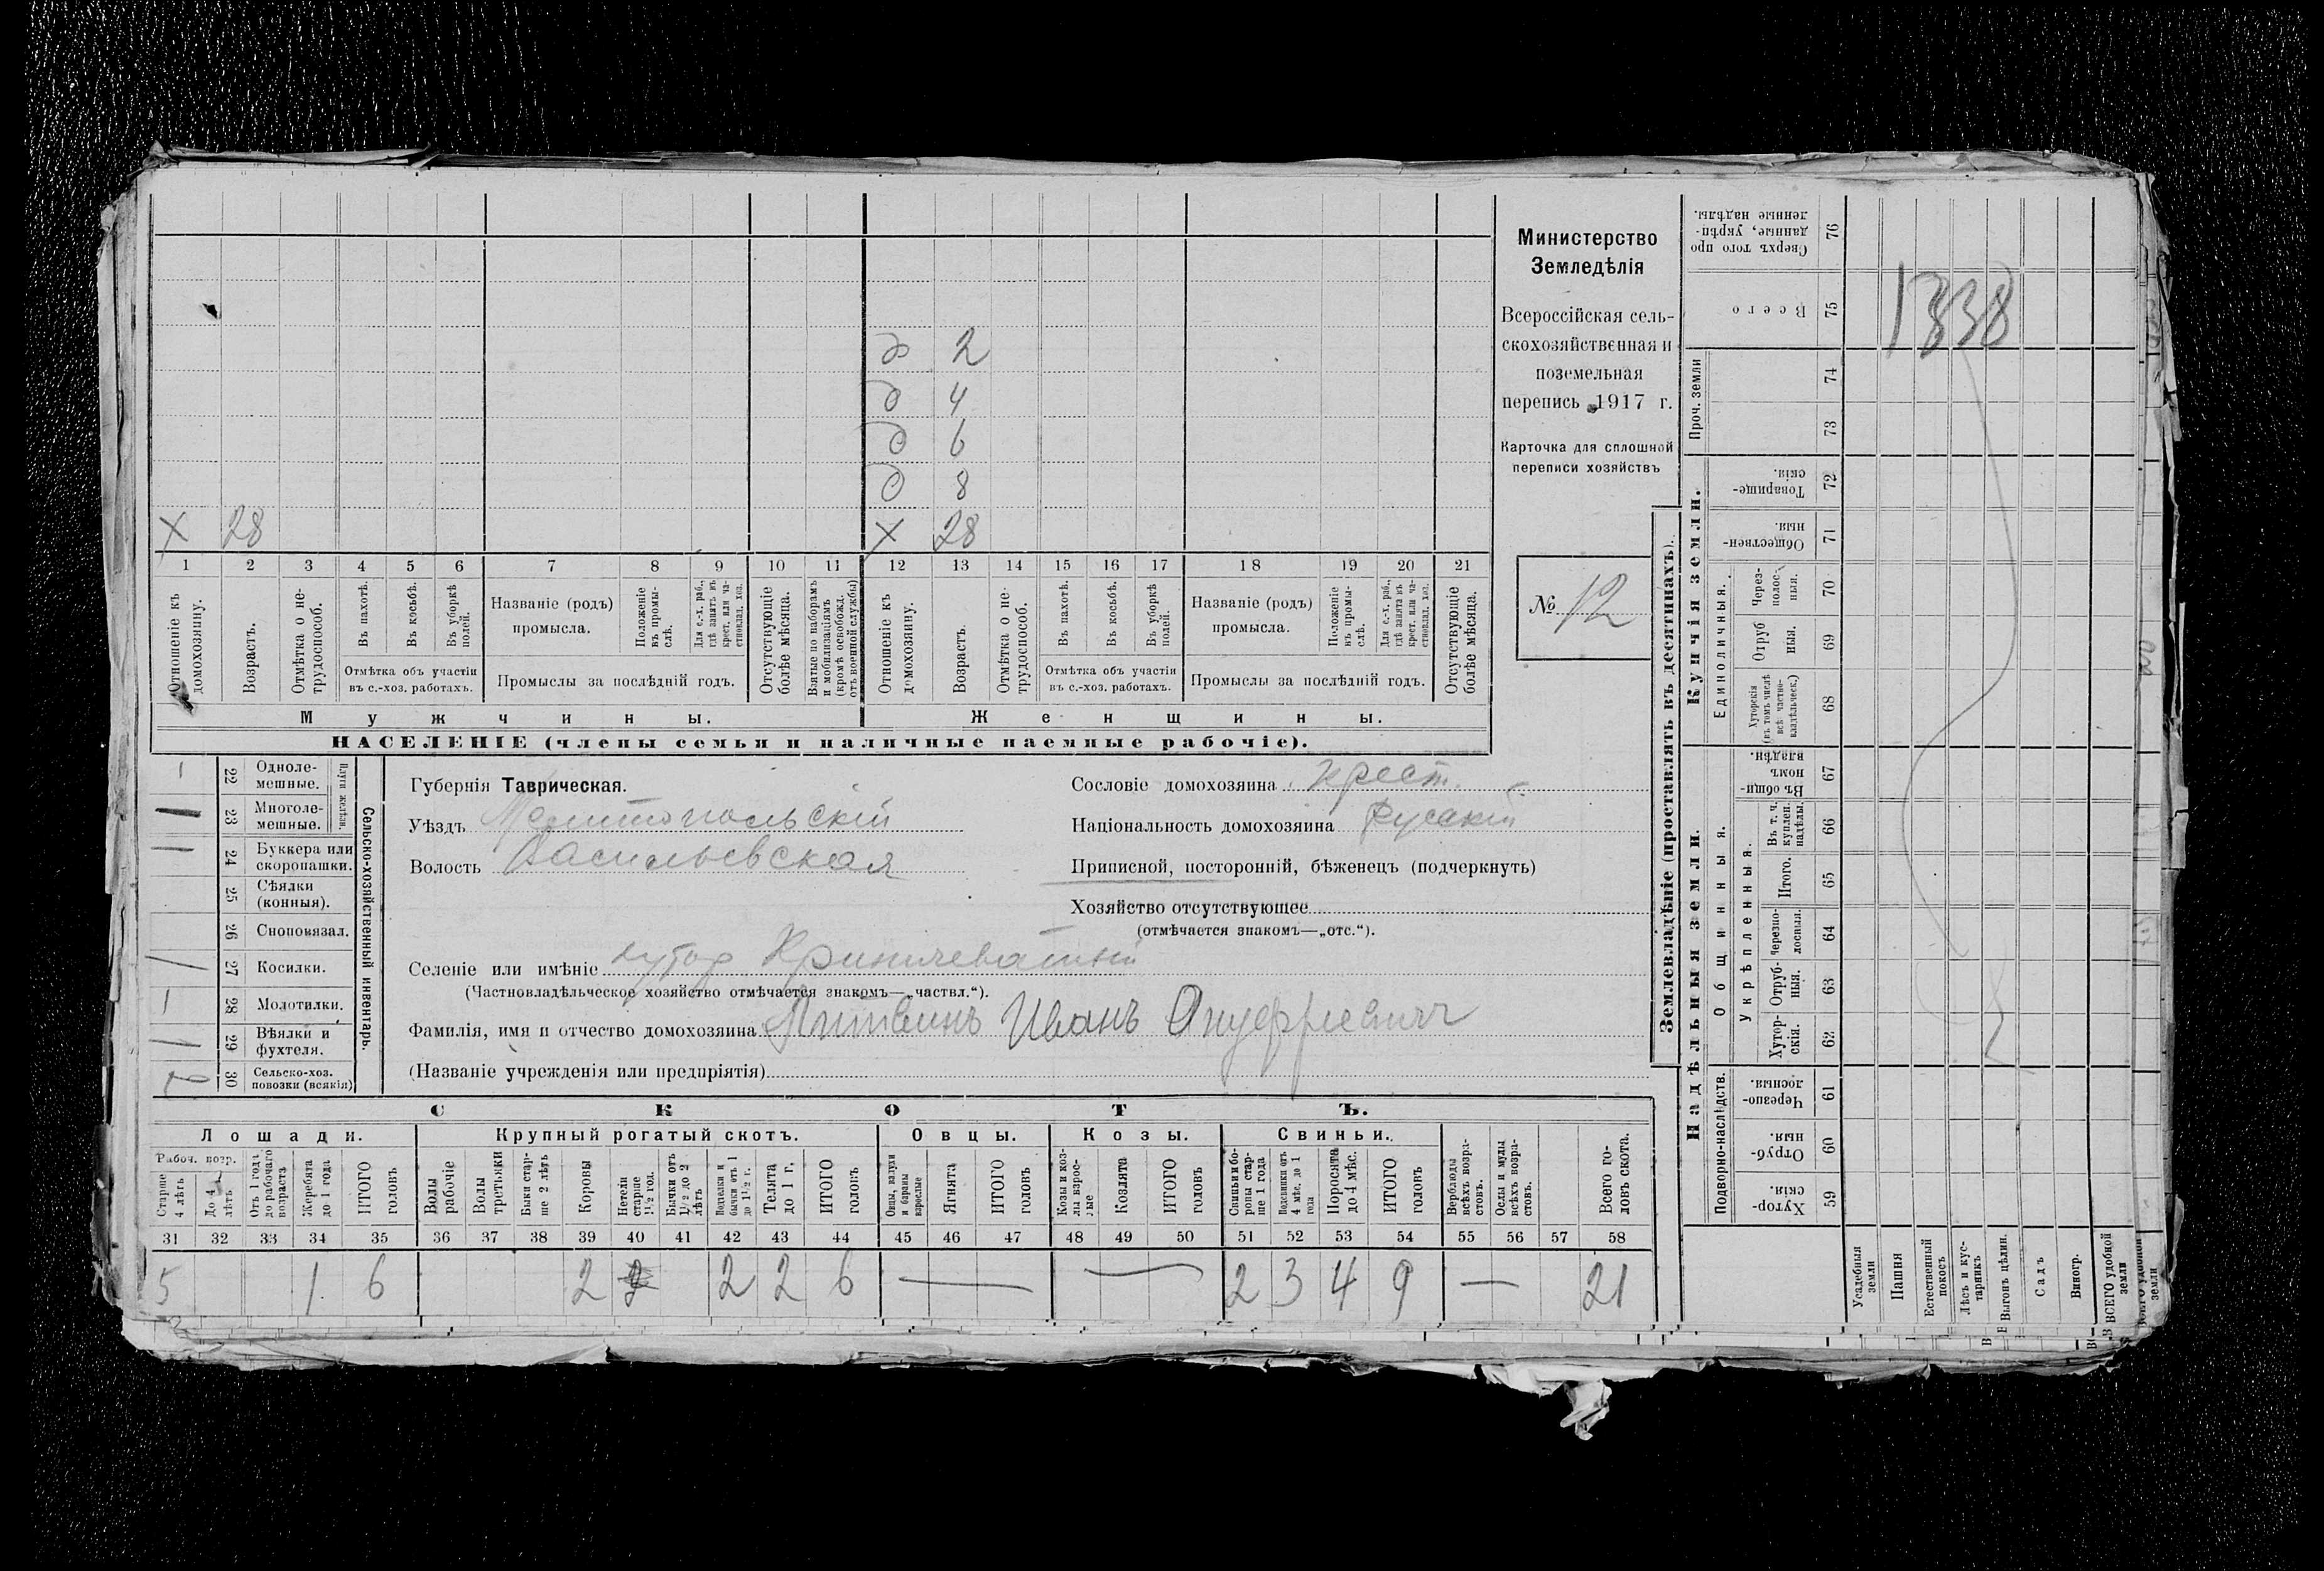 д 2
д 4
д 6
д 8
х 28 х 28
1 2 3 4 5 6 7 8 9 10 11 12 13 14 15 16 17 18 19 20 21
Отношеніе къ домохозяину.
Возрастъ.
Отмѣтка о не-
трудоспособ.
Въ пахотѣ.
Въ косьбѣ.
Въ уборкѣ
полей.
Отмѣтка объ участіи
въ с.-хоз. работахъ.
Названіе (родъ)
промысла.
Положеніе
въ промы-
слѣ.
Для с.-х. раб.,
гдѣ занятъ въ
крест. или ча-
стновлад. хоз.
Промыслы за послѣдній годъ.
Отсутствующіе
болѣе мѣсяца.
Взятые по наборамъ
и мобилизаціямъ
(кромѣ освобожд.
отъ военной службы)
Отношеніе къ
домохозяину.
Возрастъ.
Отмѣтка о не-
трудоспособ.
Въ пахотѣ.
Въ косьбѣ.
Въ уборкѣ
полей.
Отмѣтка объ участіи
въ с.-хоз. работахъ.
Названіе (родъ)
промысла.
Положеніе
въ промы-
слѣ.
Для с.-х. раб.,
гдѣ занятъ въ
крест. или ча-
стновлад. хоз.
Промыслы за послѣдній годъ.
Отсутствующіе
болѣе мѣсяца.
Мужчины. Женщины.
НАСЕЛЕНІЕ (члены семьи и наличные наемные рабочіе).
Министерство
Земледѣлія
Всероссійская сель-
скохозяйственная и
поземельная
перепись 1917 г.
Карточка для сплошной
переписи хозяйствъ
№ 12
Сельско-хозяйственный инвентарь.
Плуги желѣзн.
1 22 Одноле-
мешные.
1 23 Многоле-
мешные.
1 24 Буккера или
скоропашки.
25 Сѣялки
(конныя).
26 Сноповязал.
1 27 Косилки.
1 28 Молотилки.
1 29 Вѣялки и
фухтеля.
30 Сельско-хоз.
повозки (всякія)
Губернія Таврическая.
Уѣздъ Мелитопольскій
Волость Васильевская
Сословіе домохозяина крест.
Національность домохозяина Русскій
Приписной, посторонній, бѣженецъ (подчеркнуть)
Хозяйство отсутствующее
(отмѣчается знакомъ—„отс.“).
Селеніе или имѣніе хутор Криничеватый
(Частновладѣльческое хозяйство отмѣчается знакомъ—„частвл.“).
Фамилія, имя и отчество домохозяина Литвинъ Иванъ Онуфріевичъ
(Названіе учрежденія или предпріятія)
СКОТЪ.
Лошади. Крупный рогатый скотъ. Овцы. Козы. Свиньи.
Рабоч. возр.
Старше
4 лѣтъ
До 4
лѣтъ
Отъ 1 года
до рабочаго
возраста
Жеребята
до 1 года
ИТОГО
головъ
Волы
рабочіе
Волы
третьяки
Быки стар-
ше 2 лѣтъ
Коровы
Нетели
старше
1½ год.
Бычки отъ
1½ до 2
лѣтъ
Подтелки и
бычки отъ 1
до 1½ г.
Телята
до 1 г.
ИТОГО
головъ
Овцы, валухи
и бараны
взрослые
Ягнята
ИТОГО
головъ
Козы и коз-
лы взрос-
лые
Козлята
ИТОГО
головъ
Свиньи и бо-
ровы стар-
ше 1 года
Подсвинки отъ
4 мѣс. до 1
года
Поросята
до 4 мѣс.
ИТОГО
головъ
Верблюды
всѣхъ возра-
стовъ.
Ослы и мулы
всѣхъ возра-
стовъ.
Всего го-
ловъ скота.
31 32 33 34 35 36 37 38 39 40 41 42 43 44 45 46 47 48 49 50 51 52 53 54 55 56 57 58
5 1 6 2 2 2 6 — — 2 3 4 9 — 21
Землевладѣніе (проставлять въ десятинахъ).
Надѣльныя земли. Купчія земли.
Подворно-наслѣдств.
Общинныя.
Укрѣпленныя.
Единоличныя.
Проч. земли
Хутор-
скія.
59
Отруб-
ныя.
60
Черезпо-
лосныя.
61
Хутор-
скія.
62
Отруб-
ныя.
63
Черезпо-
лосныя.
64
Итого.
65
Въ т. ч.
куплен.
надѣлы.
66
Въ общин-
номъ
владѣн.
67
Хуторскія
(въ томъ числѣ
всѣ частно-
владѣльческ.)
68
Отруб
ныя.
69
Через-
полос-
ныя.
70
Обществен-
ныя.
71
Товарище-
скія.
72
73
74
Всего
75
Сверхъ того про
данные, укрѣп-
ленные надѣлы.
76
1338
Усадебныя
земли
Пашня
Естественный
покосъ
Лѣсъ и кус-
тарникъ
Выгонъ цѣлин.
Садъ
Виногр.
ВСЕГО удобной
земли